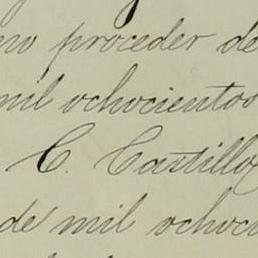 mo proceder de
mil ochocientos
C. Castillo
de mil ochoci